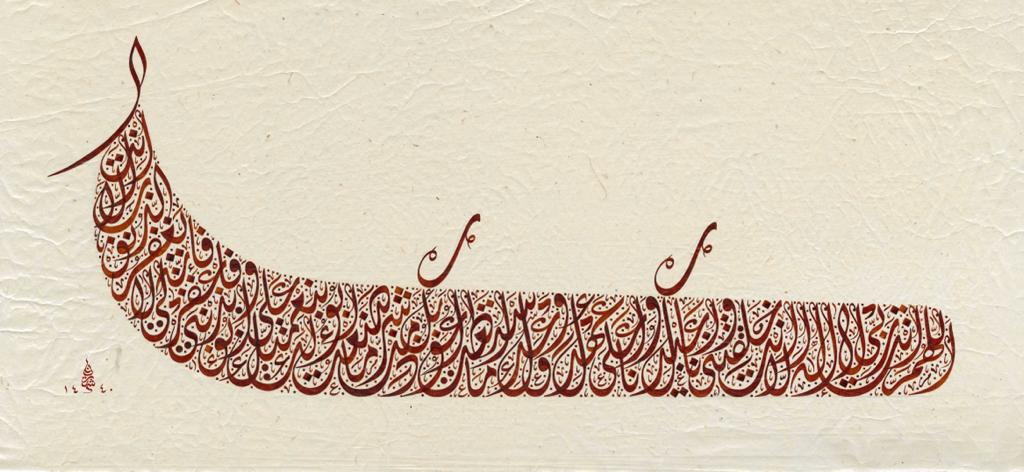 اللهم أنت ربي لا إله إلا أنت خلقتني وأنا عبدك وأنا على عهدك ووعدك ما استطعت أعوذ بك من شر ما صنعت أبوء لك بنعمتك علي وأبوء بذنبي فاغفر لي فإنه لا يغفر الذنوب إلا أنت
١٤ ٤٠